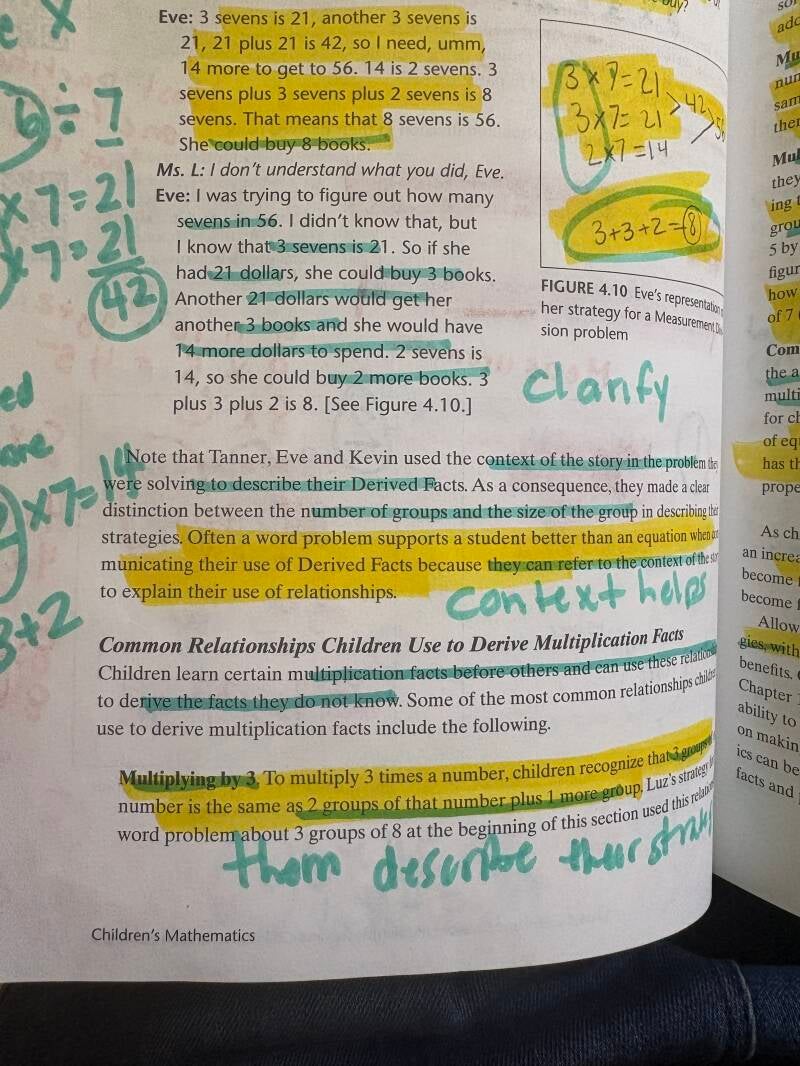 Eve: 3 sevens is 21, another 3 sevens is
21, 21 plus 21 is 42, so I need, umm,
14 more to get to 56. 14 is 2 sevens. 3
sevens plus 3 sevens plus 2 sevens is 8
sevens. That means that 8 sevens is 56.
She could buy 8 books.
Ms. L: I don't understand what you did, Eve.
Eve: I was trying to figure out how many
sevens in 56. I didn't know that, but
I know that 3 sevens is 21. So if she
had 21 dollars, she could buy 3 books.
Another 21 dollars would get her
another 3 books and she would have
14 more dollars to spend. 2 sevens is
14, so she could buy 2 more books. 3
plus 3 plus 2 is 8. [See Figure 4.10.]
3 × 7 = 21
3 × 7 = 21 > 42
2 × 7 = 14
3+3+2=8
FIGURE 4.10 Eve's representation
her strategy for a Measurement
sion problem
clarify
÷ 7
× 7 = 21
× 7 = 21
42
× 7 = 14
3+2
Note that Tanner, Eve and Kevin used the context of the story in the problem they
were solving to describe their Derived Facts. As a consequence, they made a clear
distinction between the number of groups and the size of the group in describing their
strategies. Often a word problem supports a student better than an equation when
municating their use of Derived Facts because they can refer to the context of the
to explain their use of relationships.
context helps
Common Relationships Children Use to Derive Multiplication Facts
Children learn certain multiplication facts before others and can use these
to derive the facts they do not know. Some of the most common relationships
use to derive multiplication facts include the following.
Multiplying by 3. To multiply 3 times a number, children recognize that 3 groups
number is the same as 2 groups of that number plus 1 more group. Luz's strategy
word problem about 3 groups of 8 at the beginning of this section used this
them describe their
Children's Mathematics
they
ing
5 by
how
of 7
the a
multi
for
of
has
prope
As
an increa
become
become
Allow
gies, with
benefits.
Chapter
ability to
on makin
ics can be
facts and